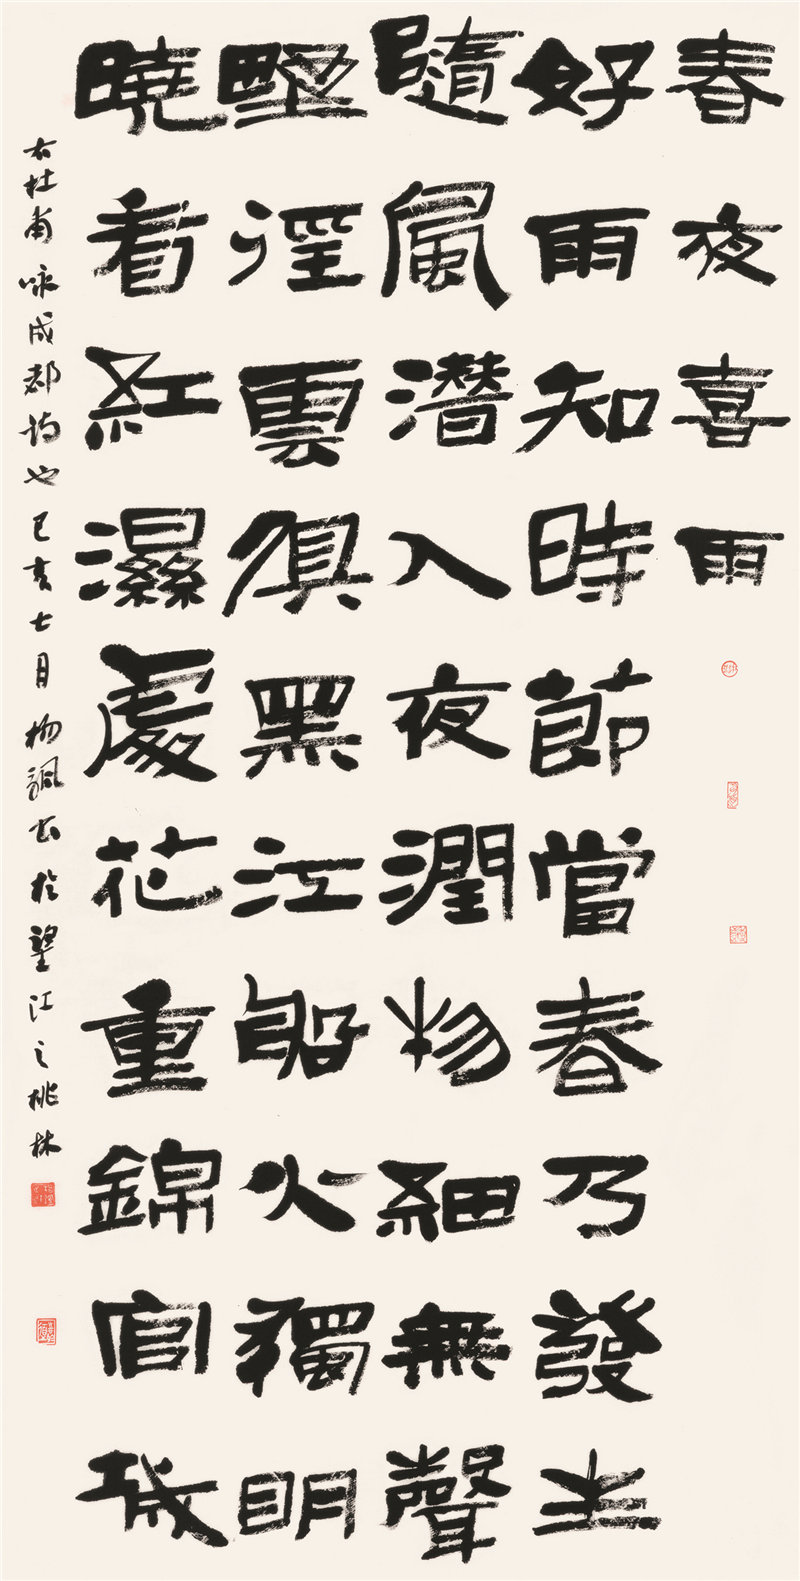 春夜喜雨
好雨知時節當春乃發生
隨風潛入夜潤物細無聲
野徑雲俱黑江船火獨明
曉看紅濕處花重錦官城
右杜甫咏成都詩也己亥七月書於望江之桃林